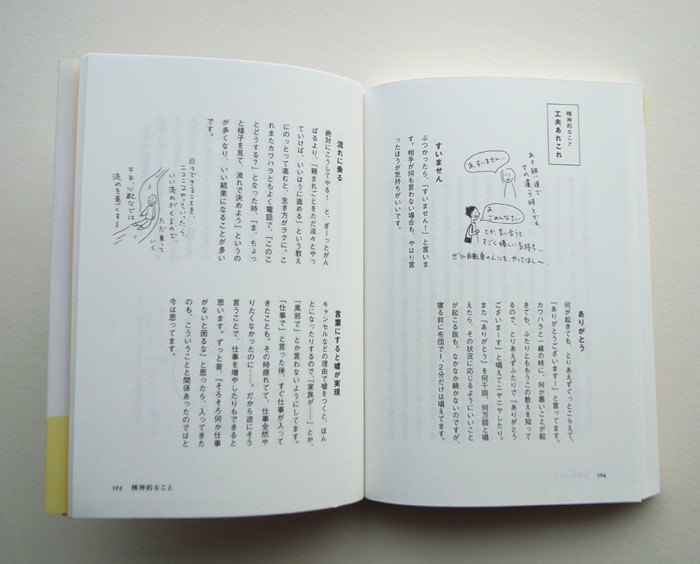 精神的なこと
工夫あれこれ
すいません
ぶつかったら、「すいません！」と言いま
す。相手が何も言わない場合も、やはり言
ったほうが気持ちがいいです。
あと細い道で
すれ違う時とかも
あ、すいません…
あ、
ごめんなさい
とか、言い合うと、
すごく優しい気持ち。
ぜひ自転車の人にも、やってほし〜
ありがとう
何が起きても、とりあえずぐっとこらえて、
「ありがとうございます！」と言ってます。
カワハラと一緒の時に、何か悪いことが起
きても、ふたりとももうこの教えを知って
るので、とりあえずふたりで「ありがとう
ございます！」と唱えてニヤニヤしたり。
また「ありがとう」を何千回、何万回と唱
えたら、その状況に応じるようにいいこと
が起こる説も。なかなか続かないのですが、
寝る前に布団で1、2分だけは唱えてます。
194
流れに乗る
絶対にこうしてやる！　と、ぎーっとがん
ばるより、「頼まれごとをただ淡々とやっ
ていけば、いいほうに進める」という教え
にのっとって進むと、生き方がラクに。こ
れまたカワハラともよく電話で、「このこ
とどうする？」となった時、「ま、ちょっ
と様子を見て、流れで決めよう」というの
が多くなり、いい結果になることが多い
です。
日々できることを、
ニコニコやっていったら、
いい流れがくるので、
ただ乗って
いく
不平、心配などは
流れを悪くする
言葉にすると嘘が実現
キャンセルなどの理由で嘘をつくと、ほん
とになったりするので、「家族が……」とか、
「風邪で」とか言わないようにしてます。
「仕事で」と言った後、すぐ仕事が入って
きたことも。その時疲れてて、仕事全然や
りたくなかったのに……。だから逆にそう
言うことで、仕事を増やしたりもできると
思います。ずっと昔、「そろそろ何か仕事
がないと困るな」と思ったら、入ってきた
のも、こういうことと関係あったのではと
今は思ってます。
195　精神的なこと